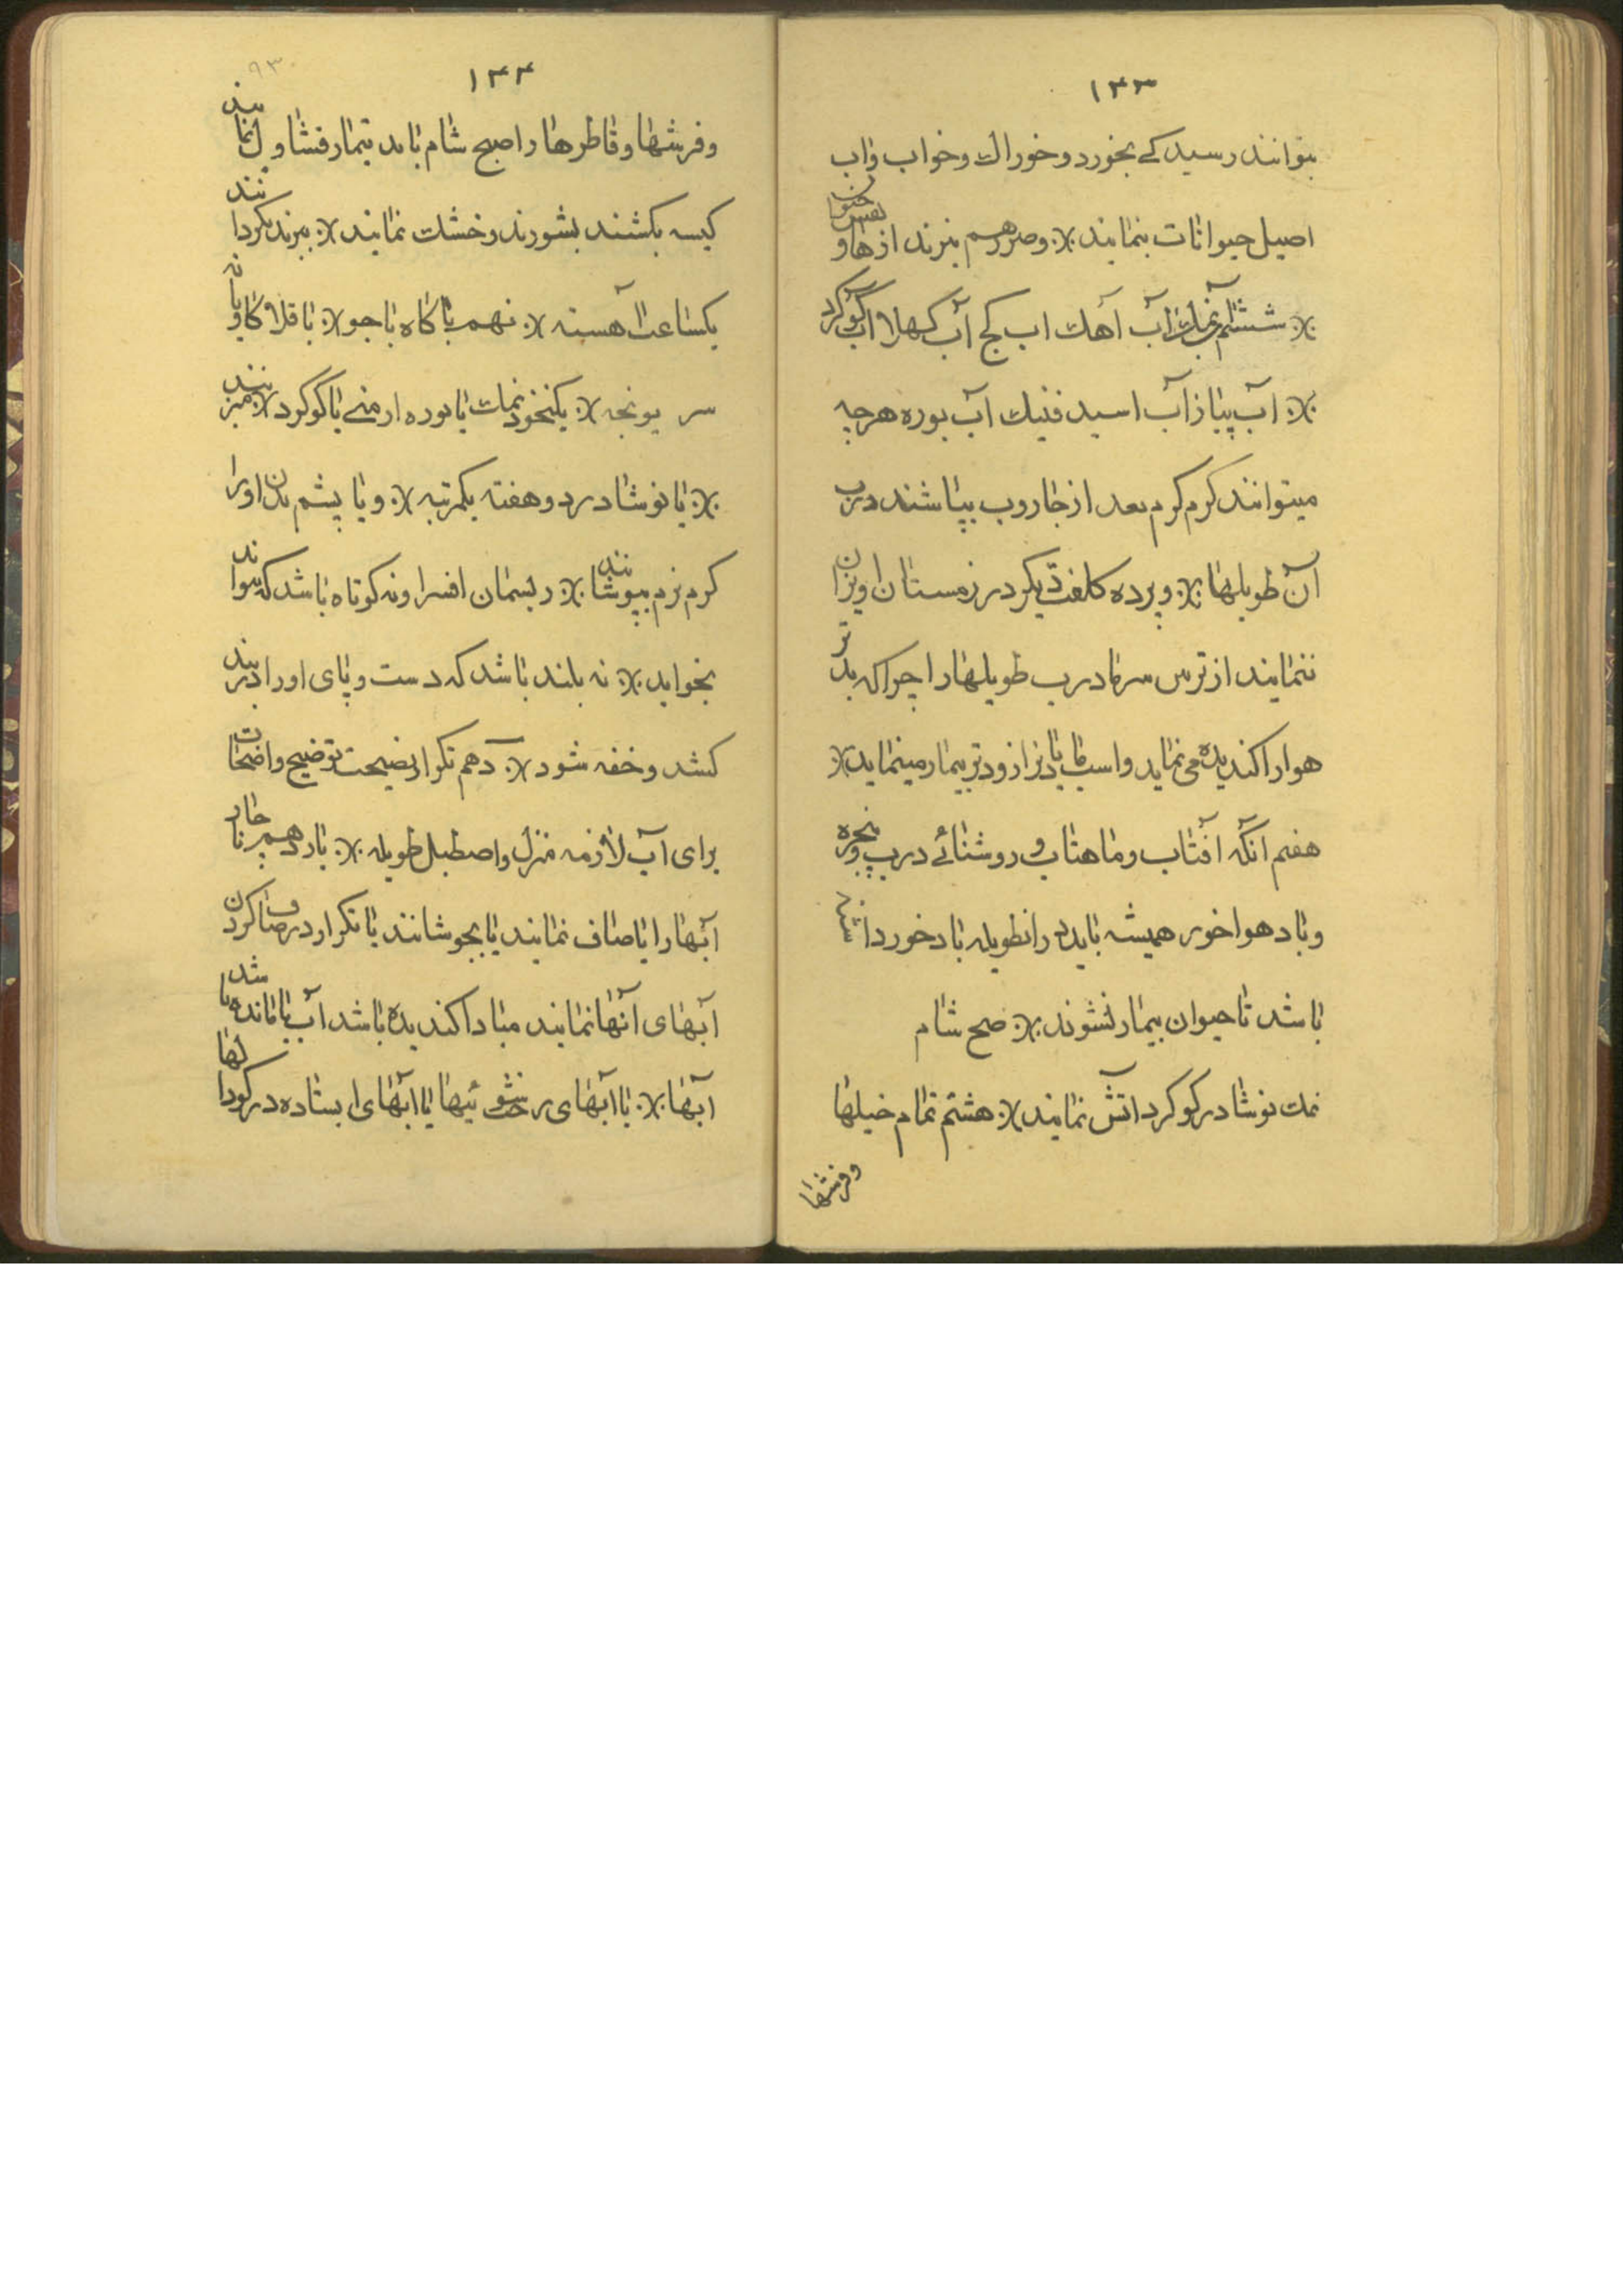 ۱۳۳
بتوانند رسید کے بخورد و خوراك و خواب واب
اصیل حیوانات بنمایند ※ و ضررهم نبرند از هاو
※ ششم آب نمك آب آهك اب کچ آب کهلا اب گوگرد
※ آب پیاز آب اسید فنیك آب بوره هرچه
میتوانند کرم کرم بعد از جاروب بپاشند درب
آن طویلها ※ و پرده کلفت دیکر در زمستان اویزان
ننمایند از ترس سرما درب طویلها را چرا که بدتر
هوا را کندیده می نماید و اسب مادیانرا زودتر بیمار مینماید ※
هفتم آنکه افتاب و ماهتاب و روشنائے درب و پنجره
و باد هواخور همیشه باید در انطویله باد خور داشته
باشد تا حیوان بیمار نشوند ※ صبح شام
نمك نوشادر کوکرد اتش نمایند ※ هشتم تمام خیلها
وفرشها
۹۳
۱۳۴
وفرشها و قاطرها را صبح شام باید تیمار قشاول نمایند
کیسه بکشند بشورند و خشك نمایند ※ ببرند بکردانند
یکساعت آهسته ※ نهم با کاه با جو ※ با قلا کاودانه
سر یونجه ※ یکنخود نمك یا بوره ارمنے یا کوکرد ※
※ یا نوشادر دو هفته یکمرتبه ※ و با پشم بدن اورا
کرم نرم بپوشانند ※ ریسمان افسرا و نه کوتاه باشد که نتواند
بخوابد ※ نه بلند باشد که دست و پای او را دربند
کشد و خفه شود ※ دهم تکرار نصیحت توضیح واضحات
برای آب لازمه منزل و اصطبل طویله ※ یازدهم ناچار
آبها را یا صاف نمایند یا بجوشانند یا تکرار در صاف کردن
آبهای آنها نمایند مبادا کندیده باشد آب یا مانده باشد
آبها ※ یا آبهای رخت شوئیها یا آبهای ایستاده در کودالها